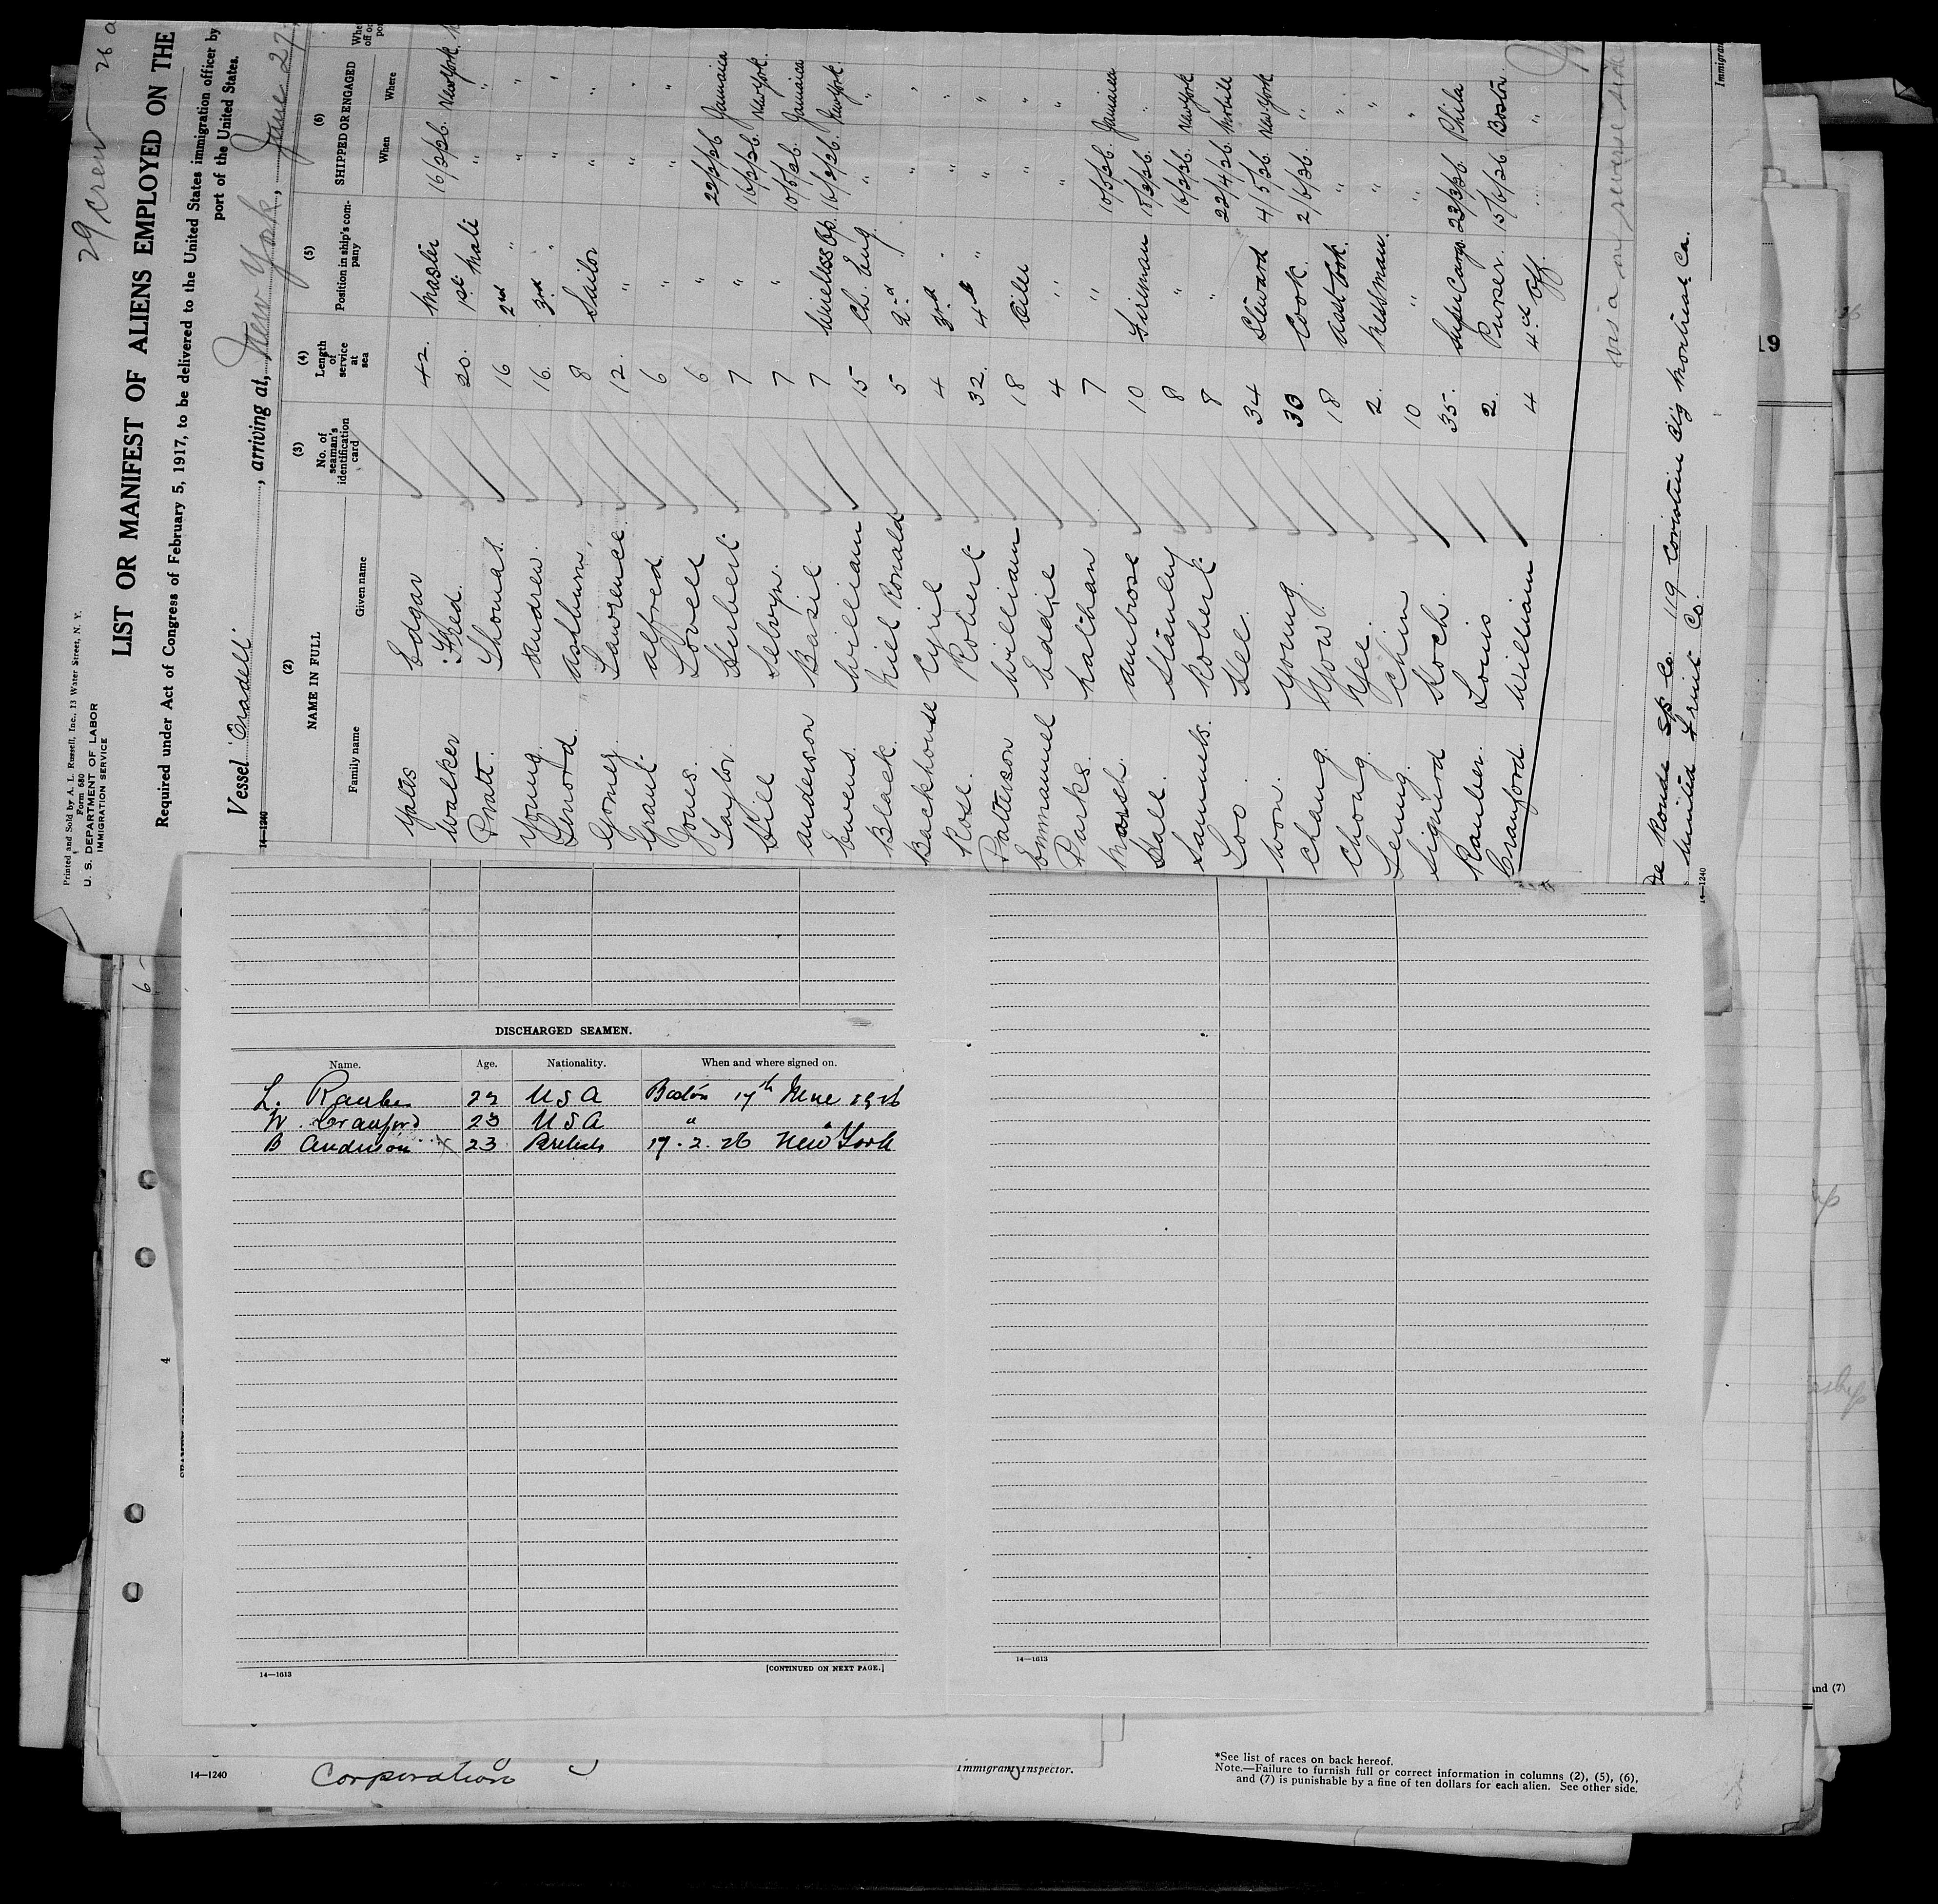 29 crew
Printed and Sold by A. L. Russell, Inc., 13 Water Street, N. Y.
Form 680
U. S. DEPARTMENT OF LABOR
IMMIGRATION SERVICE
LIST OR MANIFEST OF ALIENS EMPLOYED ON THE
Required under Act of Congress of February 5, 1917, to be delivered to the United States immigration officer by
port of the United States.
Vessel "Oradell" , arriving at, New York, June 27
14—1240
(2) (3) (4) (5) (6)
NAME IN FULL No. of seaman's identification card Length of service at sea Position in ship's company SHIPPED OR ENGAGED
Family name Given name When Where
Yates Edgar 42. Master 16/2/26. New York.
Walker Fred. 20. 1st Mate " "
Pratt. Thomas. 16 2nd " " "
Young. Andrew. 16. 3rd " "
Lenord. Ashburn, 8 Sailor " "
Gomez. Lawrence. 12. " " "
Grant. Alfred. 6 " " "
Jones. Lovell 6 " 22/3/26 Jamaica
Taylor. Herbert 7 " 16/2/26. New York.
Hill Selvyn. 7 " 10/5/26. Jamaica
Anderson Basil 7 Wireless Op. 16/2/26. New York.
Evens. William 15 Ch. Eng. " "
Black. Niel Ronald 5 2nd " " "
Backhouse Cyril 4 3rd " " "
Rose. Robert 32. 4th " " "
Patterson William 18 Oiler " "
Emmanuel Eddie 4 " " "
Parks. Nathan 7 " 10/5/26. Jamaica
Marsh. Ambrose 10 Fireman
Hall. Stanley 8 " 16/2/26. New York
Sammuels. Robert. 8 " 22/4/26. Mobile
Loo Hee. 34 Steward 4/5/26. New York
Won. Young. 30 Cook. 2/6/26. "
Chang. Yow. 18 Asst Cook. " "
Choung. Yee. 2. Messman. " "
Leung. Chin 10 " " "
Sigurd Koch. 35. Super Cargo. 23/3/26. Phila
Rauber. Louis 2. Purser. 15/6/26 Boston.
Cranford William 4 4th Off. "
visa on reverse side
De Ronde SS Co. 119 Coristine Bldg Montreal. Ca.
United Fruit Co.
14—1240
DISCHARGED SEAMEN.
Name. Age. Nationality. When and where signed on.
L. Rauber 22 USA Boston 17th June 1926
W. Cranford 23 USA "
B Anderson x 23 British 17.2.26 New York
14—1613 [CONTINUED ON NEXT PAGE.]
14—1613
4
19
and (7)
14—1240 Corporation
Immigrant Inspector.
*See list of races on back hereof.
Note.—Failure to furnish full or correct information in columns (2), (5), (6),
and (7) is punishable by a fine of ten dollars for each alien. See other side.